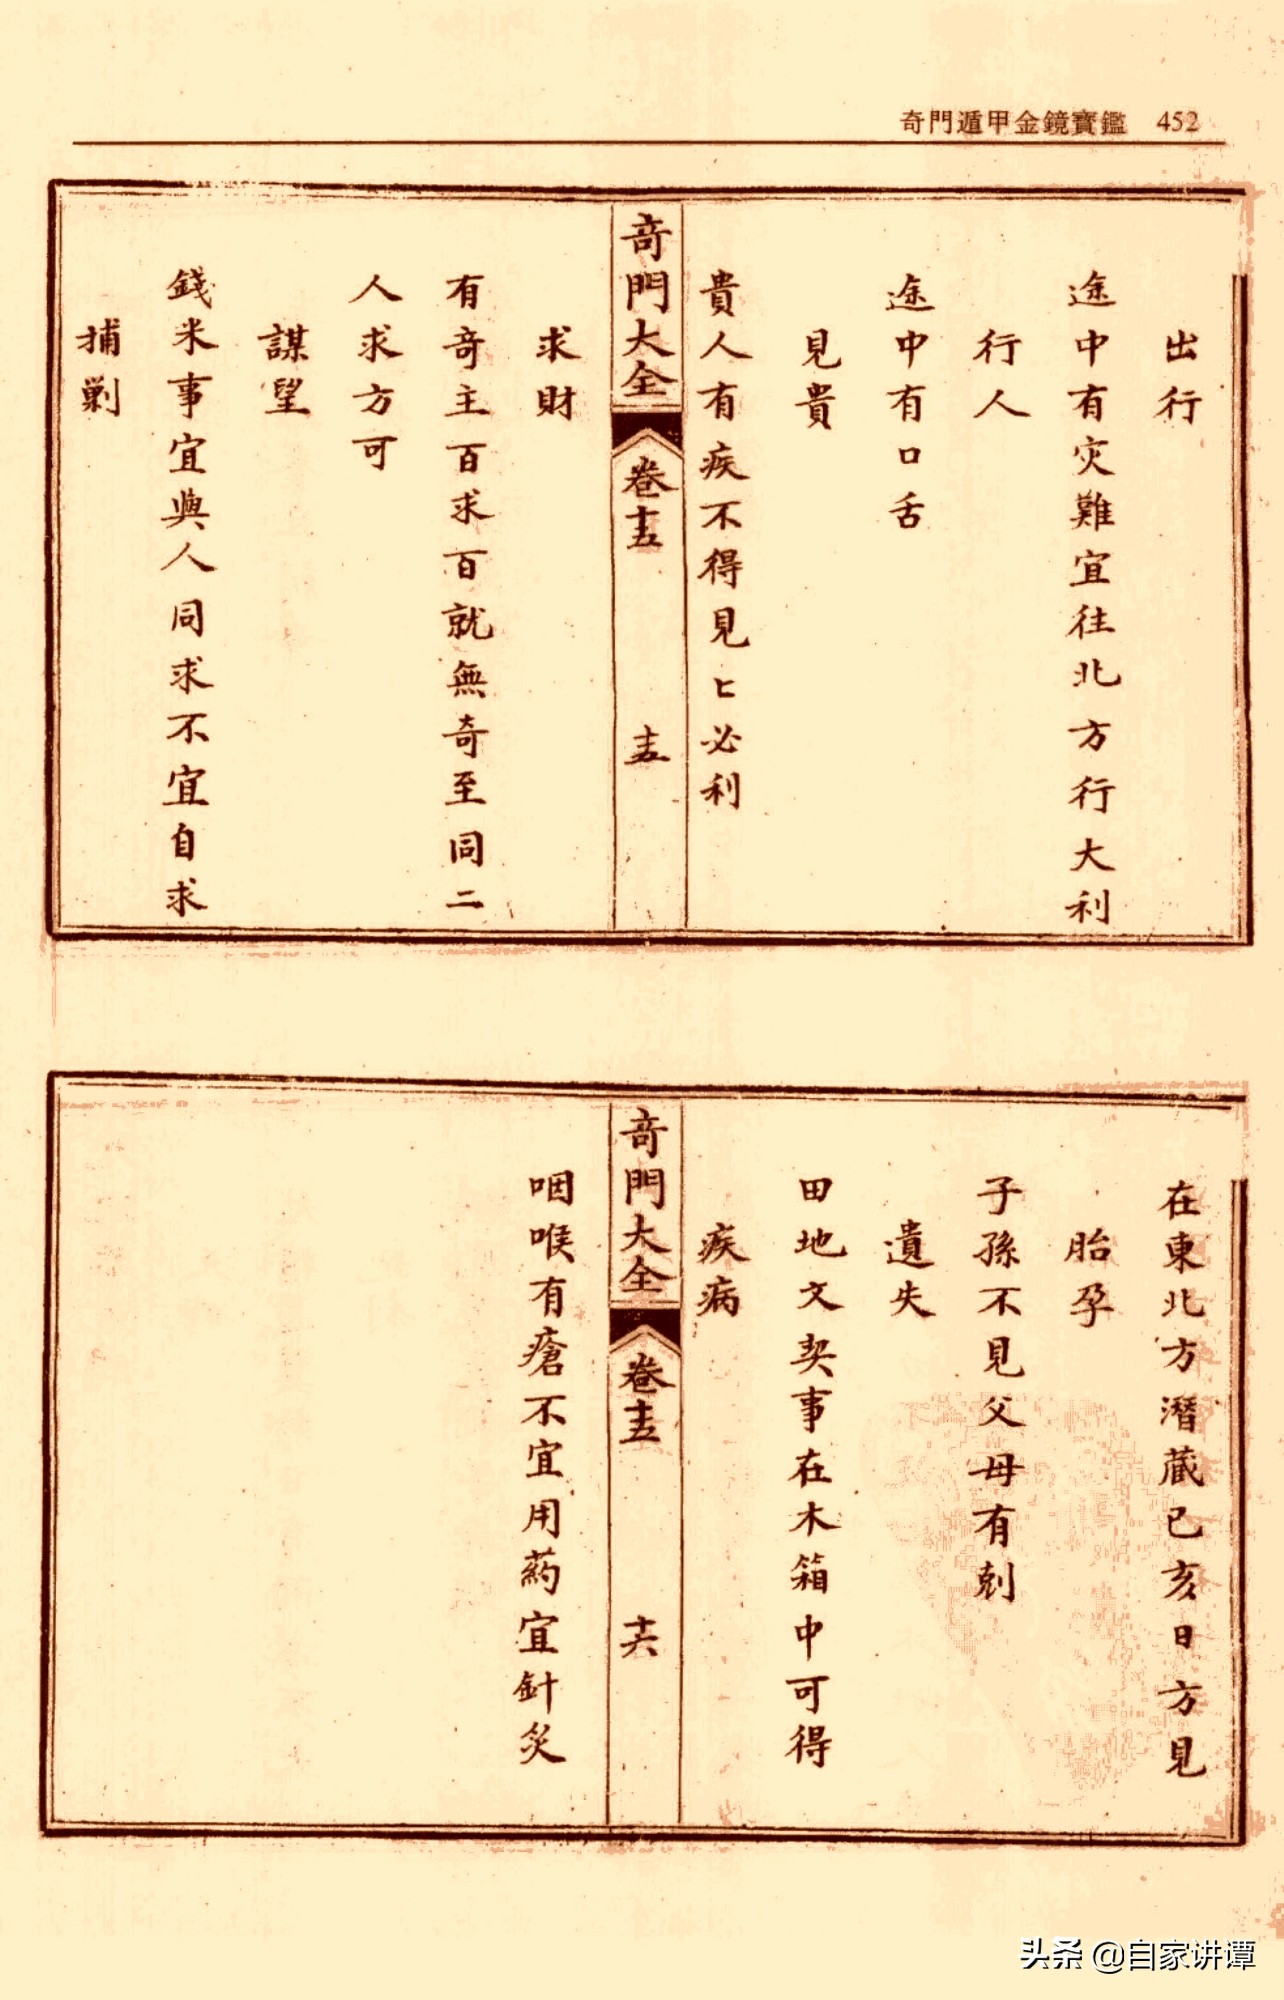 奇門遁甲金鏡寶鑑 452
出行
途中有灾難宜往北方行大利
行人
途中有口舌
見貴
貴人有疾不得見匕必利
奇門大全 卷十五 十五
求財
有奇主百求百就無奇至同二
人求方可
謀望
錢米事宜與人同求不宜自求
捕剿
在東北方潛藏已亥日方見
胎孕
子孫不見父母有剋
遺失
田地文契事在木箱中可得
疾病
奇門大全 卷十五 十六
咽喉有瘡不宜用药宜針灸
头条 @自家讲谭